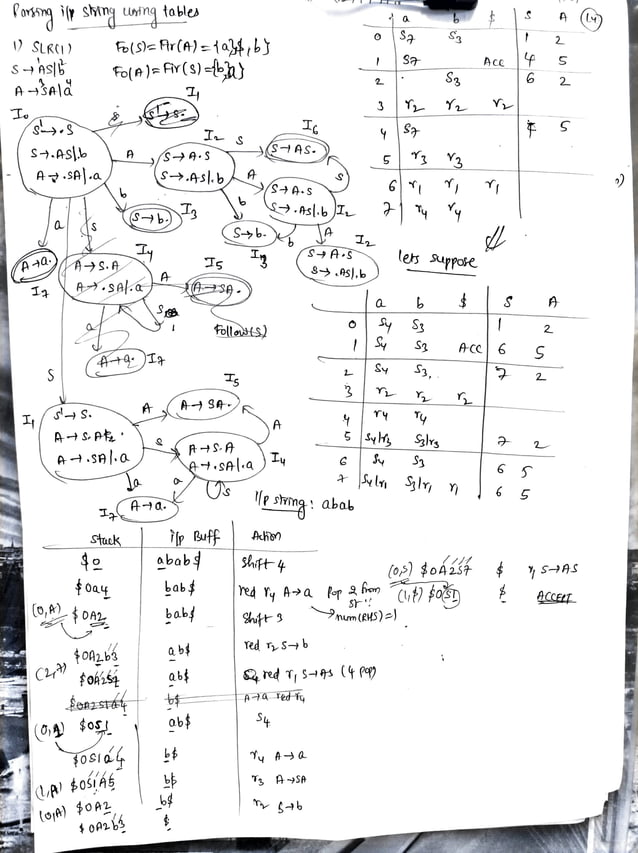 Parsing i/p string using tables
1) SLR(1)
Fo(S) = Fir(A) = {a, $, b}
S → AS|b
Fo(A) = Fir(S) = {b, a}
A → SA|a
I0
S' → .S
S → .AS|.b
A → .SA|.a
I1
S' → S.
I2
S → A.S
S → .AS|.b
I6
S → AS.
S → A.S
S → .AS|.b
I2
S → b.
I3
S → b.
I3
I2
S → A.S
S → .AS|.b
A → a.
I7
I4
A → S.A
A → .SA|.a
I5
A → SA.
Follow(S)
A → a.
I7
I1
S' → S.
A → S.A
A → .SA|.a
I5
A → SA.
A → S.A
A → .SA|.a
I4
I7
A → a.
a b $ S A
(14)
0 S7 S3 1 2
1 S7 Acc 4 5
2 S3 6 2
3 r2 r2 r2
4 S7 5
5 r3 r3
6 r1 r1 r1
7 r4 r4
lets suppose
a b $ S A
0 S4 S3 1 2
1 S4 S3 ACC 6 5
2 S4 S3 7 2
3 r2 r2 r2
4 r4 r4
5 S4/r3 S3/r3 7 2
6 S4 S3 6 5
7 S4/r1 S3/r1 r1 6 5
i/p string : abab
Stack i/p Buff Action
$0 abab$ Shift 4
$0a4 bab$ red r4 A→a Pop 2 from st
(0,A) $0A2 bab$ Shift 3 → num(RHS)=1
$0A2b3 ab$ red r2 S→b
(2,7) $0A2S7 ab$ red r1 S→AS (4 pop)
$0A2S7a4 b$ A→a red r4
(0,1) $0S1 ab$ S4
$0S1a4 b$ r4 A→a
(1,A) $0S1A5 b$ r3 A→SA
(0,A) $0A2 b$ r2 S→b
$0A2b3 $
(0,S) $0A2S7 $ r1 S→AS
(1,$) $0S1 $ ACCEPT